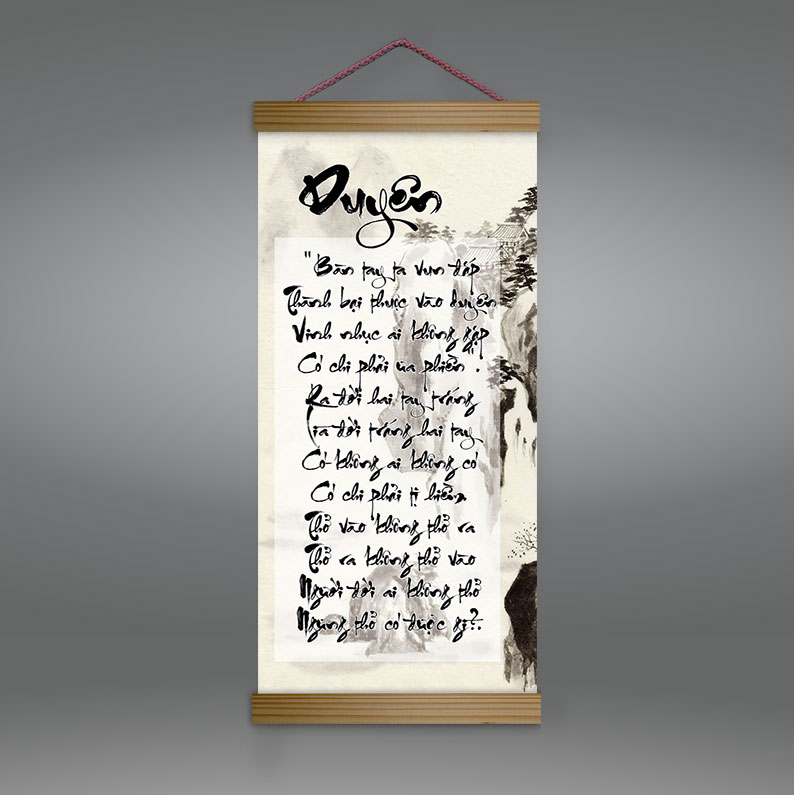 Duyên
"Bàn tay ta vun đắp
Thành bại thuộc vào duyên
Vinh nhục ai không gặp
Có chi phải ưa phiền".
Ra đời hai tay trắng
Lìa đời trắng hai tay
Có không ai không có
Có chi phải tị hiềm
Thở vào không thở ra
Thở ra không thở vào
Người đời ai không thở
Ngừng thở có được gì?.